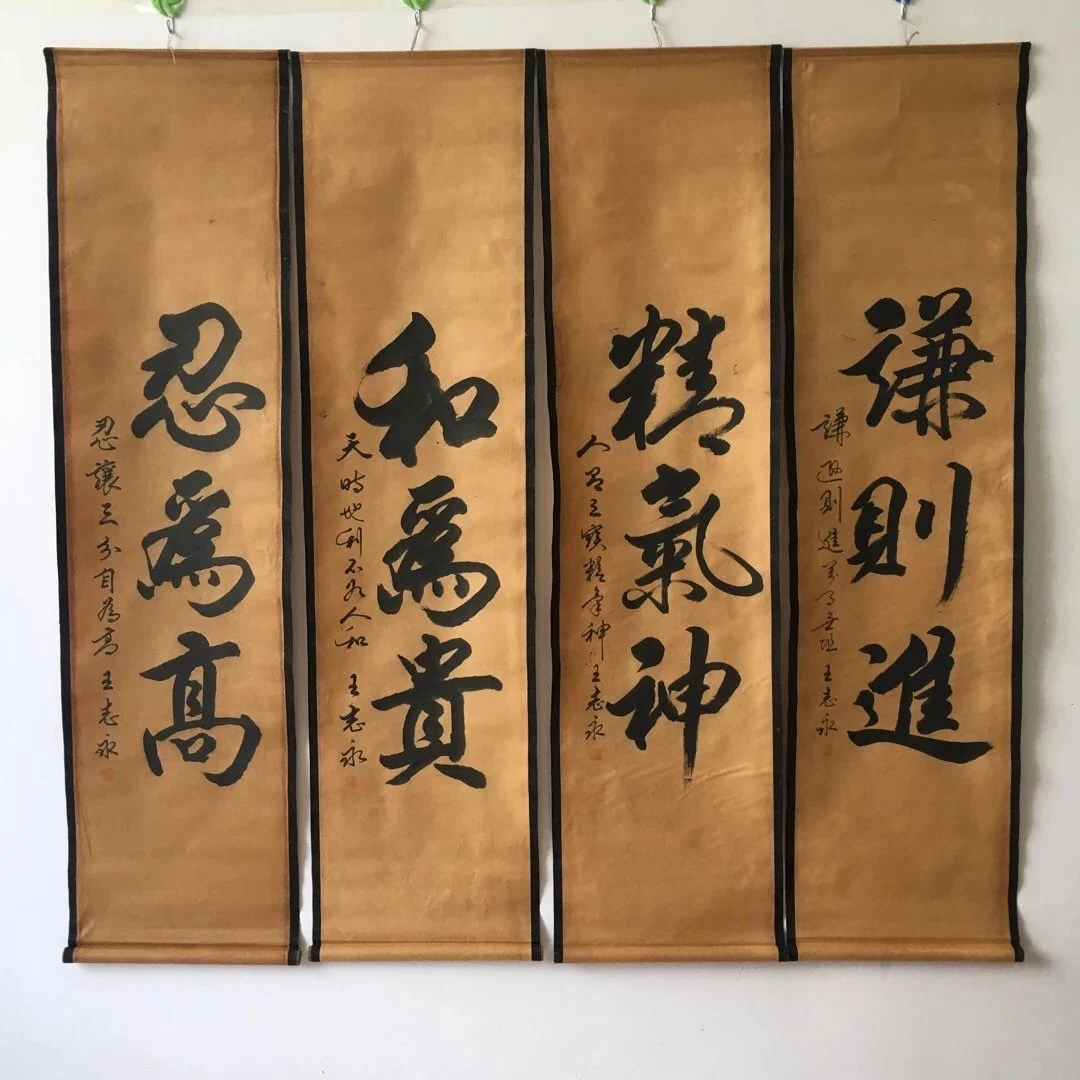 謙則進
謙遜則進 王志永
精氣神
人有三寶精氣神 王志永
和爲貴
天時地利不如人和 王志永
忍爲高
忍讓三分自為高 王志永